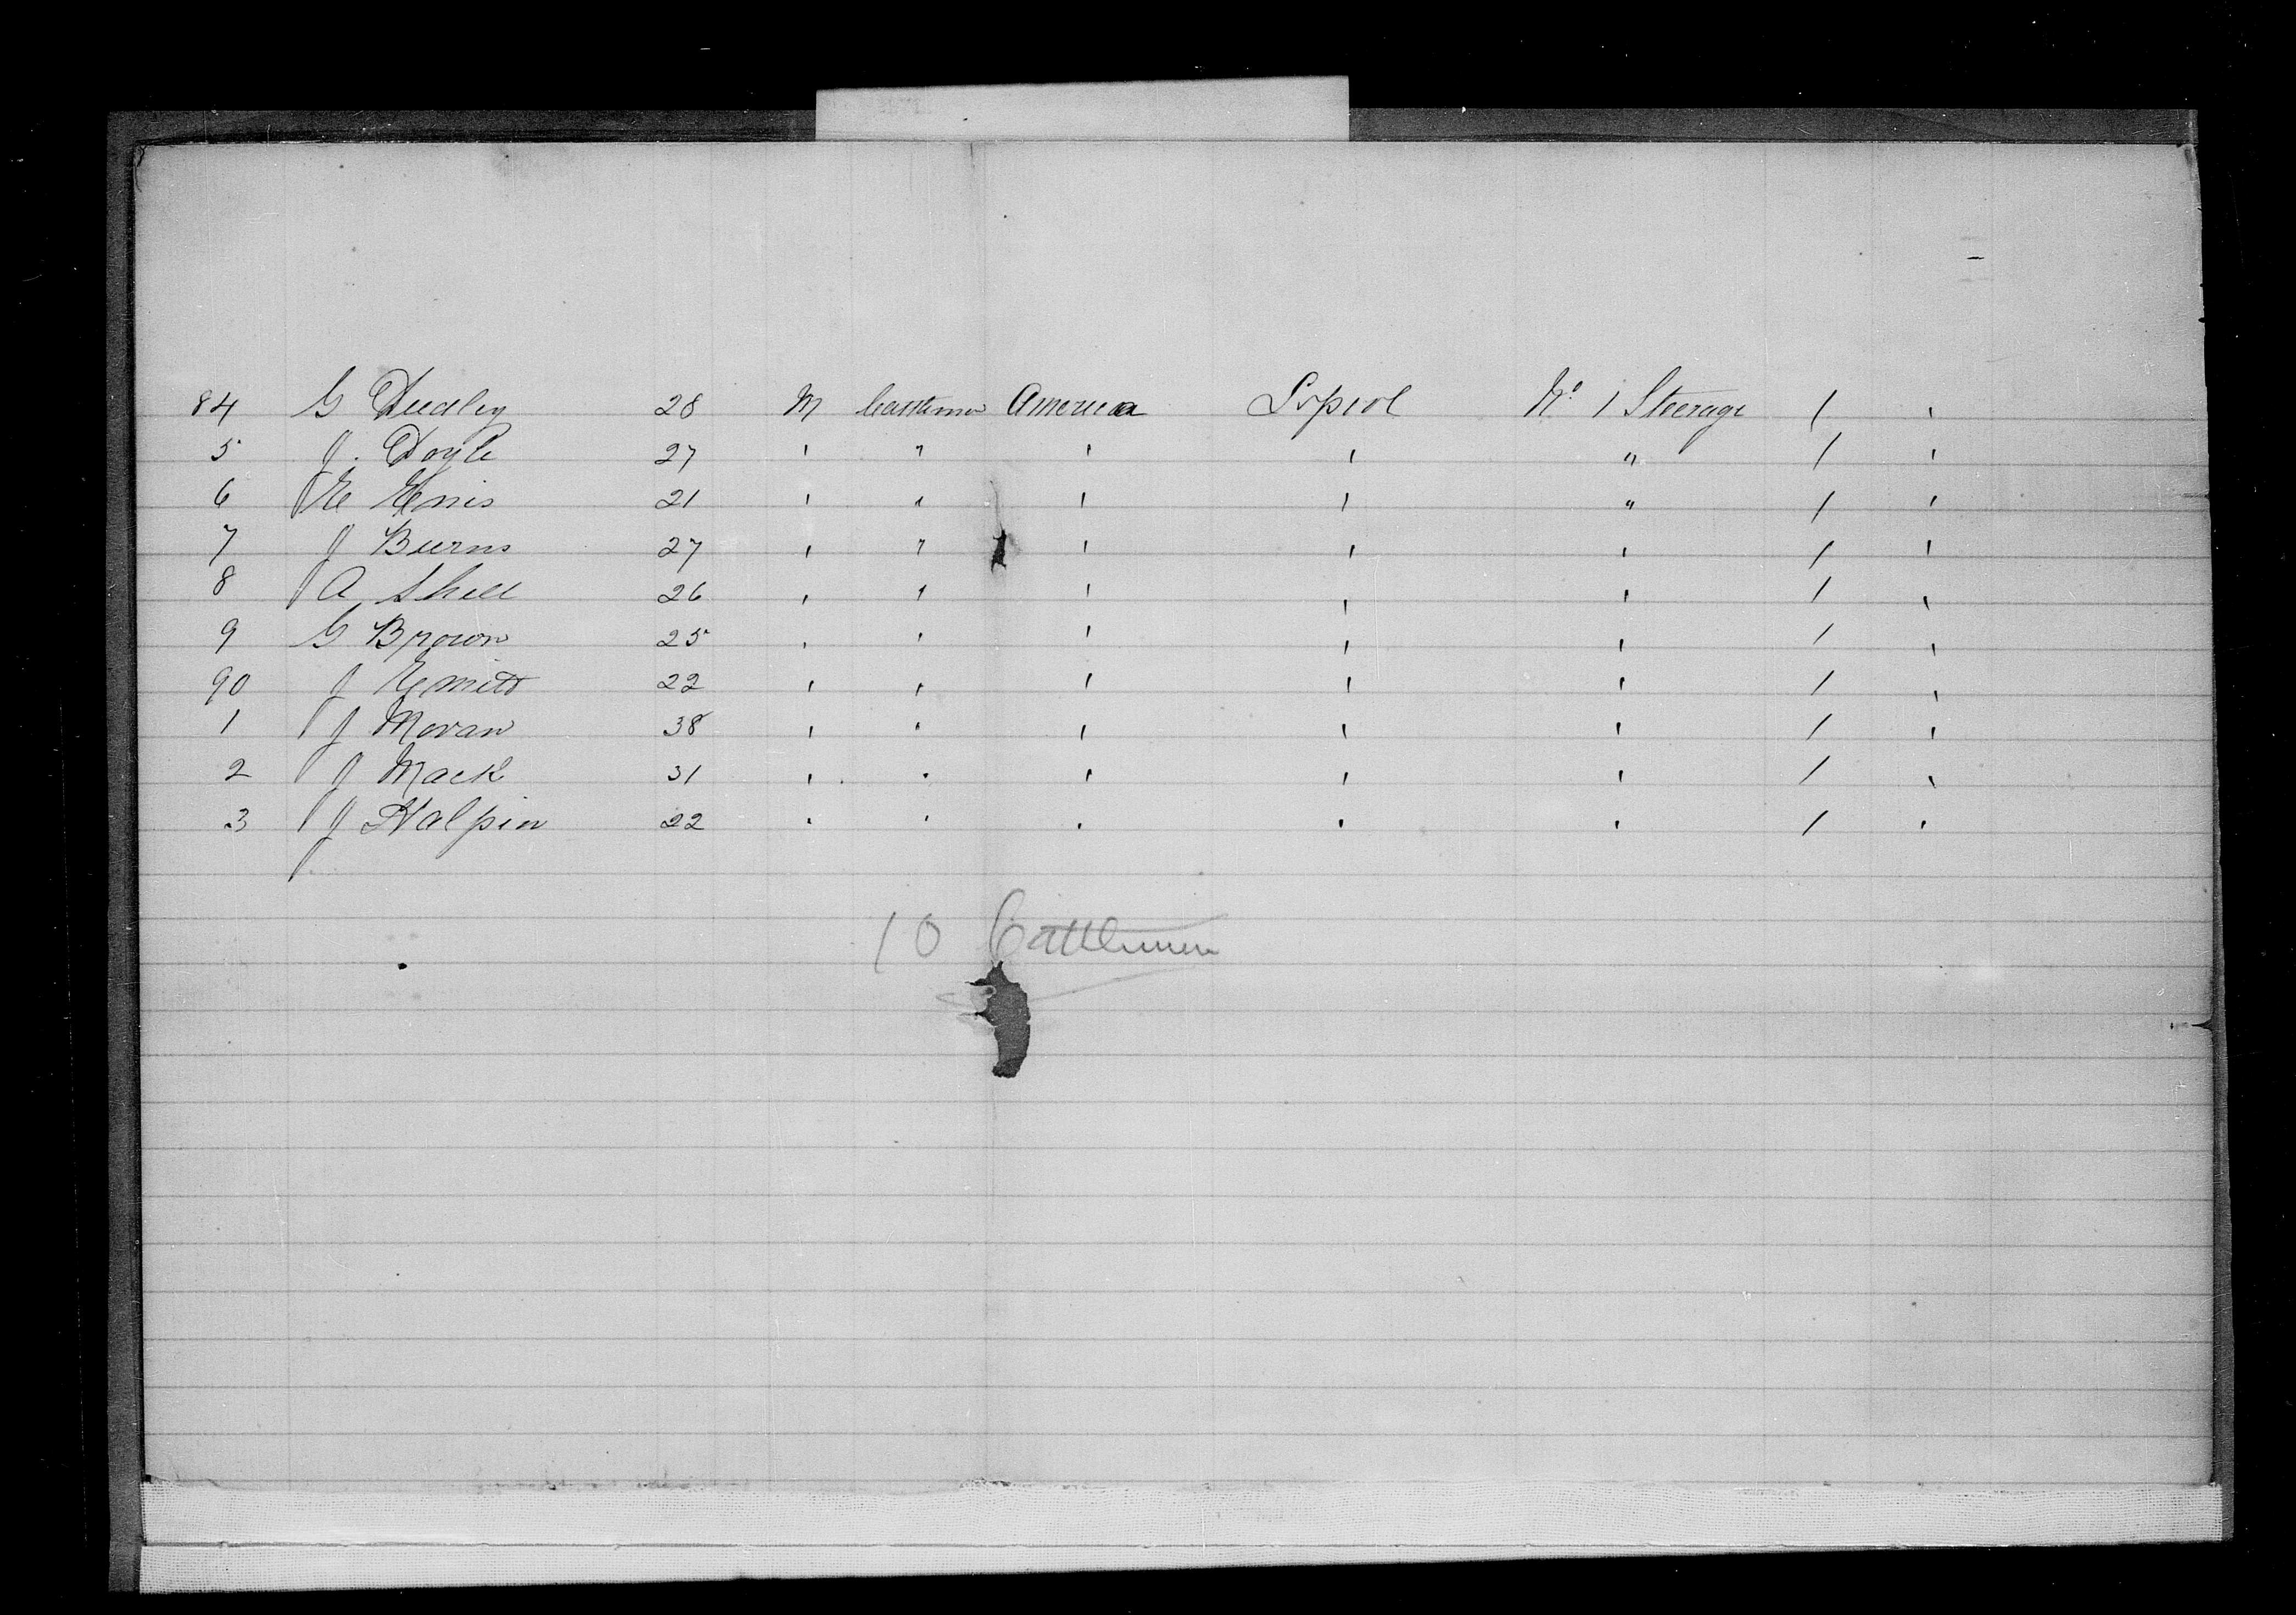 84 G Dudley 28 M Cattlemen America Lvpool No 1 Steerage 1 '
5 J. Doyle 27 ' " ' ' " 1 '
6 E Ennis 21 ' " ' ' " 1 '
7 J Burns 27 ' " ' ' ' 1 '
8 A Shell 26 ' ' ' ' ' 1 '
9 G Brown 25 ' ' ' ' ' 1 '
90 J Emitt 22 ' ' ' ' ' 1 '
1 J Moran 38 ' ' ' ' ' 1 '
2 J Mack 31 ' ' ' ' ' 1 '
3 J Halpin 22 ' ' ' ' ' 1 '
10 Cattlemen